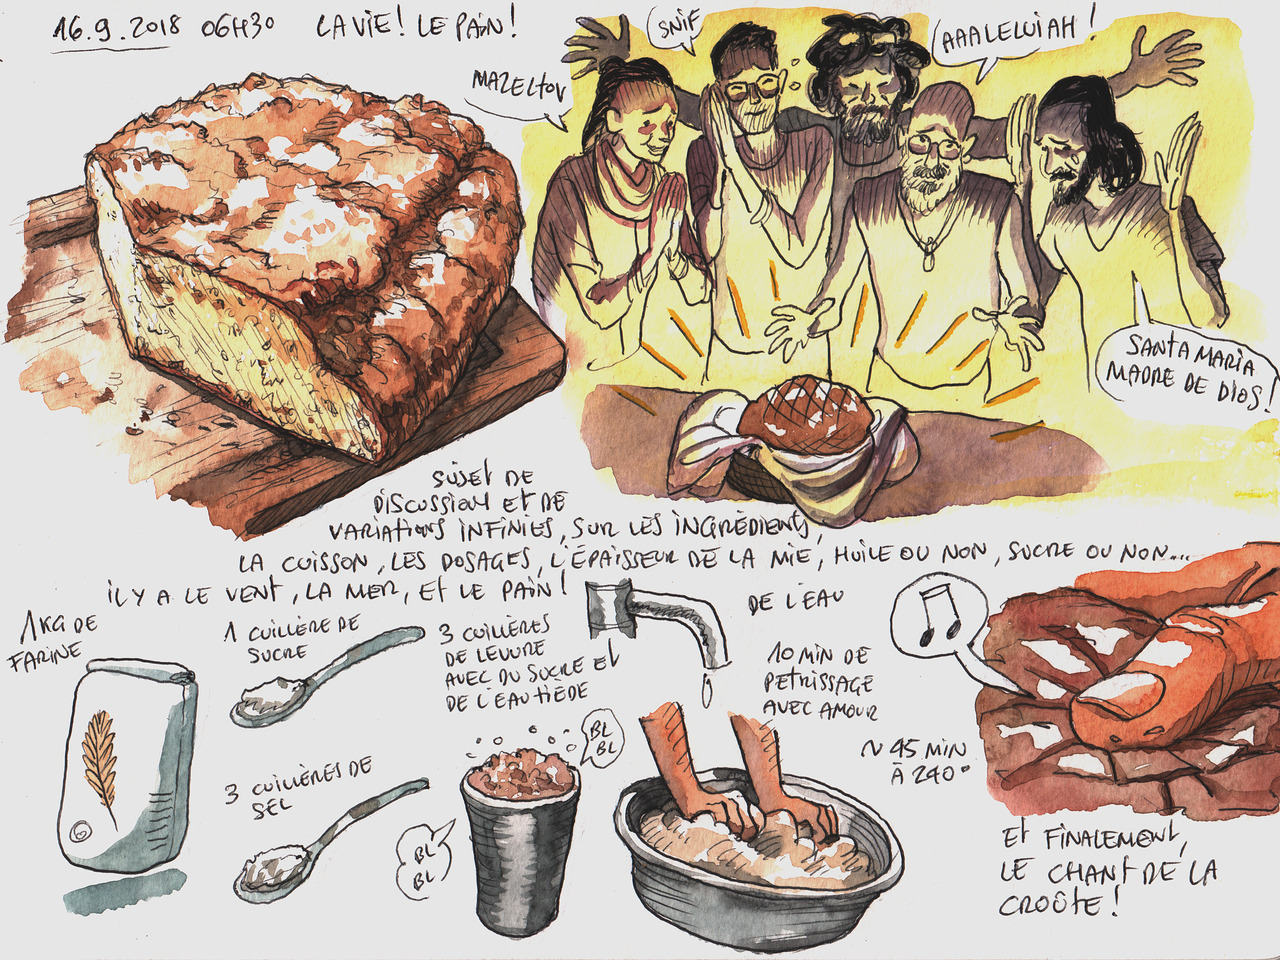 16.9.2018 06H30 LA VIE! LE PAIN!
MAZELTOV
SNIF
AAALELUIAH!
SANTA MARIA
MADRE DE DIOS!
SUJET DE
DISCUSSION ET DE
VARIATIONS INFINIES, SUR LES INGRÉDIENTS,
LA CUISSON, LES DOSAGES, L'ÉPAISSEUR DE LA MIE, HUILE OU NON, SUCRE OU NON...
IL Y A LE VENT, LA MER, ET LE PAIN!
1KG DE
FARINE
1 CUILLÈRE DE
SUCRE
3 CUILLÈRES DE
SEL
3 CUILLÈRES
DE LEVURE
AVEC DU SUCRE ET
DE L'EAU TIÈDE
BL
BL
BL
BL
DE L'EAU
10 MIN DE
PETRISSAGE
AVEC AMOUR
~ 45 MIN
À 240°
ET FINALEMENT,
LE CHANT DE LA
CROÛTE!